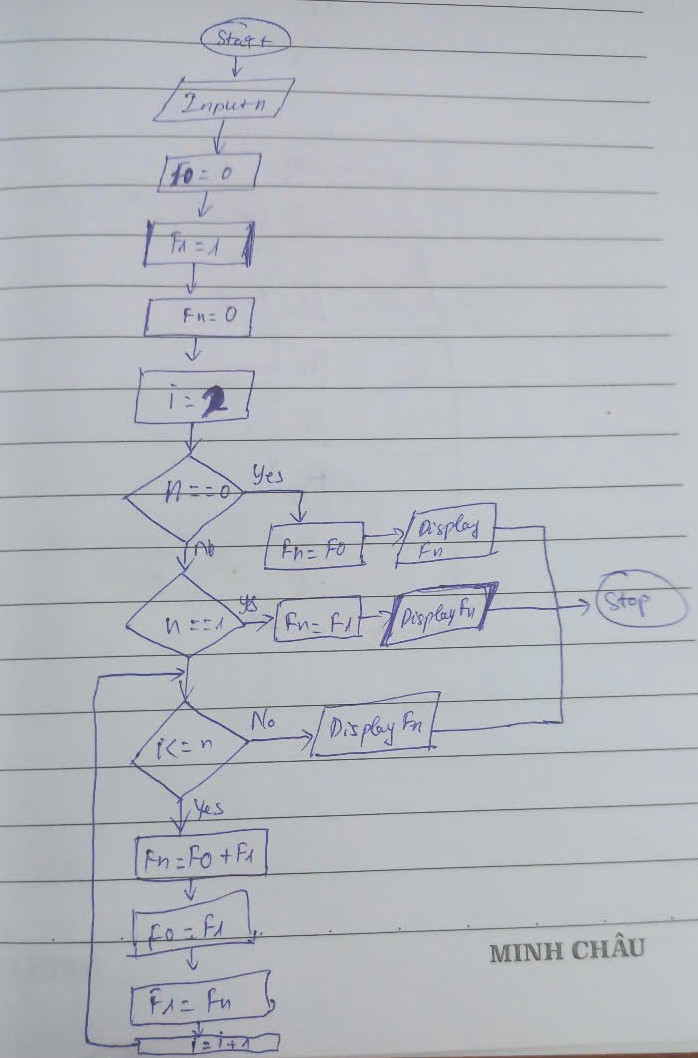 Start
Input n
F0 = 0
F1 = 1
Fn = 0
i = 2
n == 0
Yes
Fn = F0
Display
Fn
No
n == 1
Yes
Fn = F1
Display Fn
Stop
i <= n
No
Display Fn
Yes
Fn = F0 + F1
F0 = F1
F1 = Fn
i = i + 1
MINH CHÂU